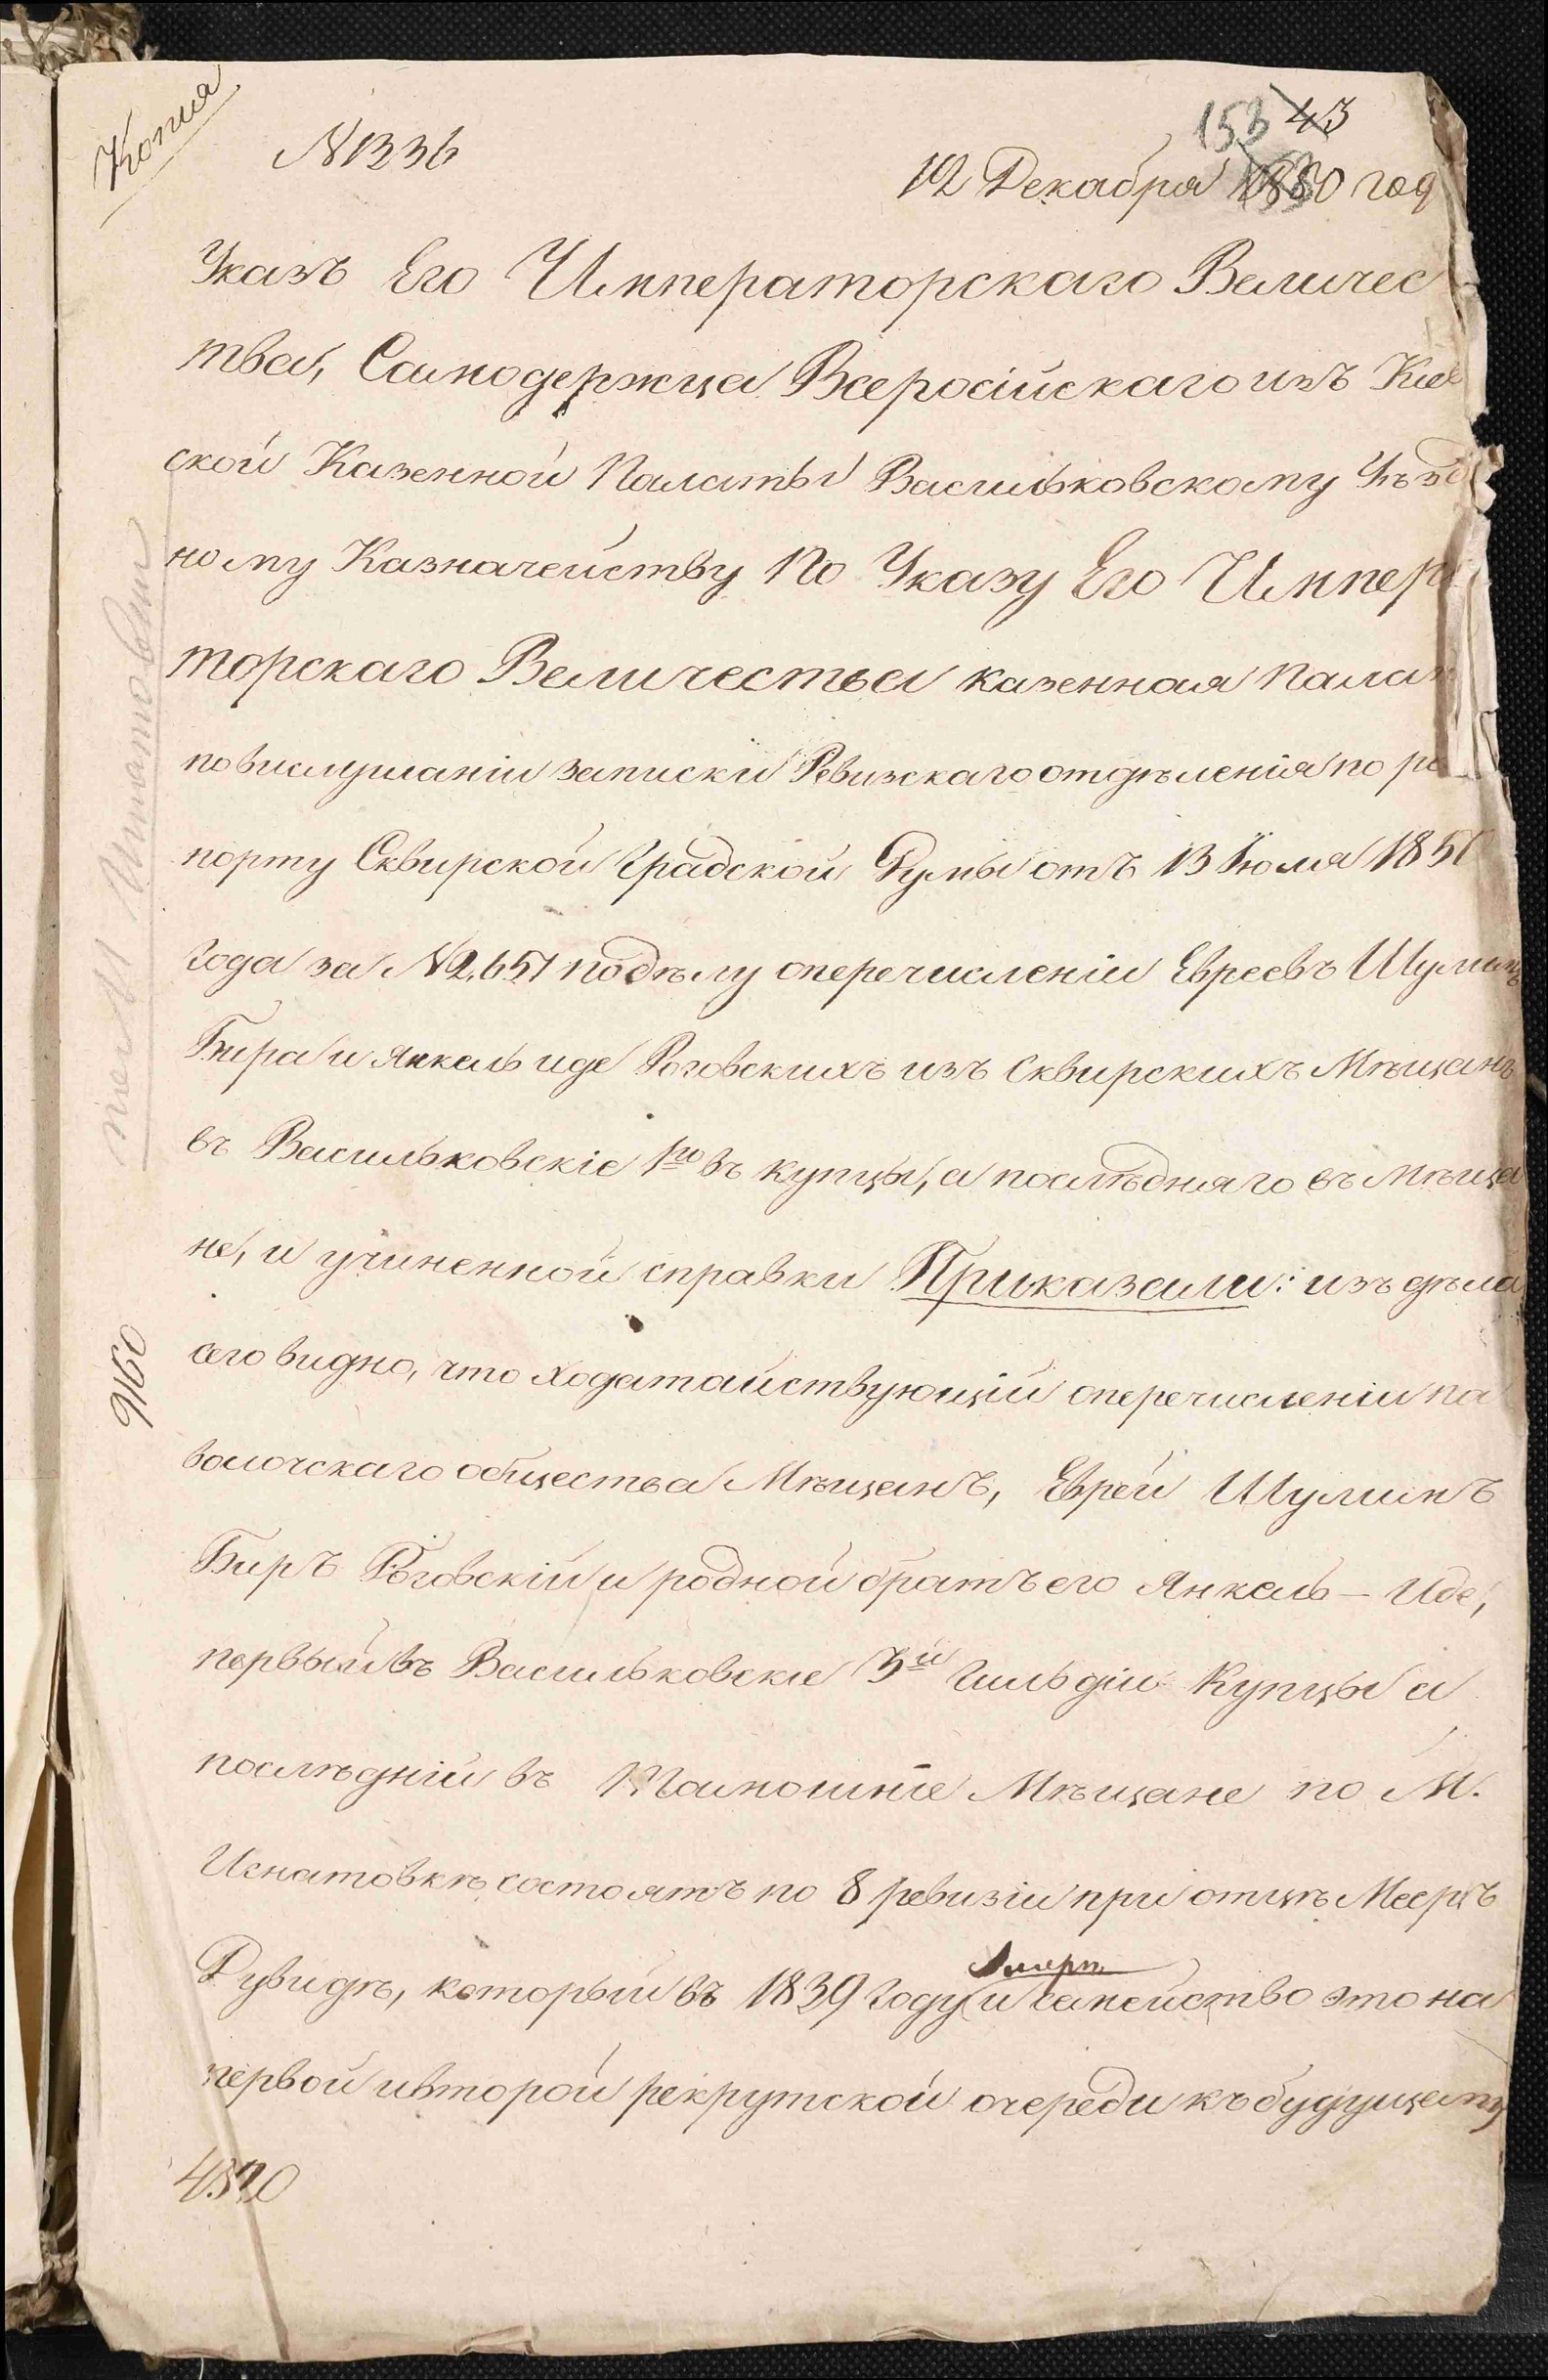 Копия
№ 1336
153 43
12 Декабря 1850 год
Указъ Его Императорскаго Величес
тва, Самодержца Всеросійскаго изъ Кіев
ской Казенной Палаты Васильковскому Уѣзд
ному Казначейству По Указу Его Импера
торскаго Величества казенная Палат
по выслушаніи записки Ревизскаго отдѣленія по ра
порту Сквирской Градской Думы отъ 13 Іюля 1850
года за № 2,657 по дѣлу о перечисленіи Евреевъ Шулимъ
Бира и Янкель иде Роговскихъ изъ Сквирскихъ Мѣщанъ
въ Васильковскіе 1го въ купцы, а послѣдняго въ мѣща
не, и учиненной справки Приказали: изъ дѣла
сего видно, что ходатайствующій о перечисленіи па
волочскаго общества Мѣщанъ, Еврей Шулимъ
Биръ Роговскій и родной братъ его Янкель - Иде,
первый въ Васильковскіе 3й Гильдіи Купцы а
послѣдній въ Тамошніе Мѣщане по М.
Игнатовкѣ состоятъ по 8 ревизіи при отцѣ Меерѣ
Дувидѣ, который въ 1839 году умеръ и семейство это на
первой и второй рекрутской очереди къ будущему
9160
4370